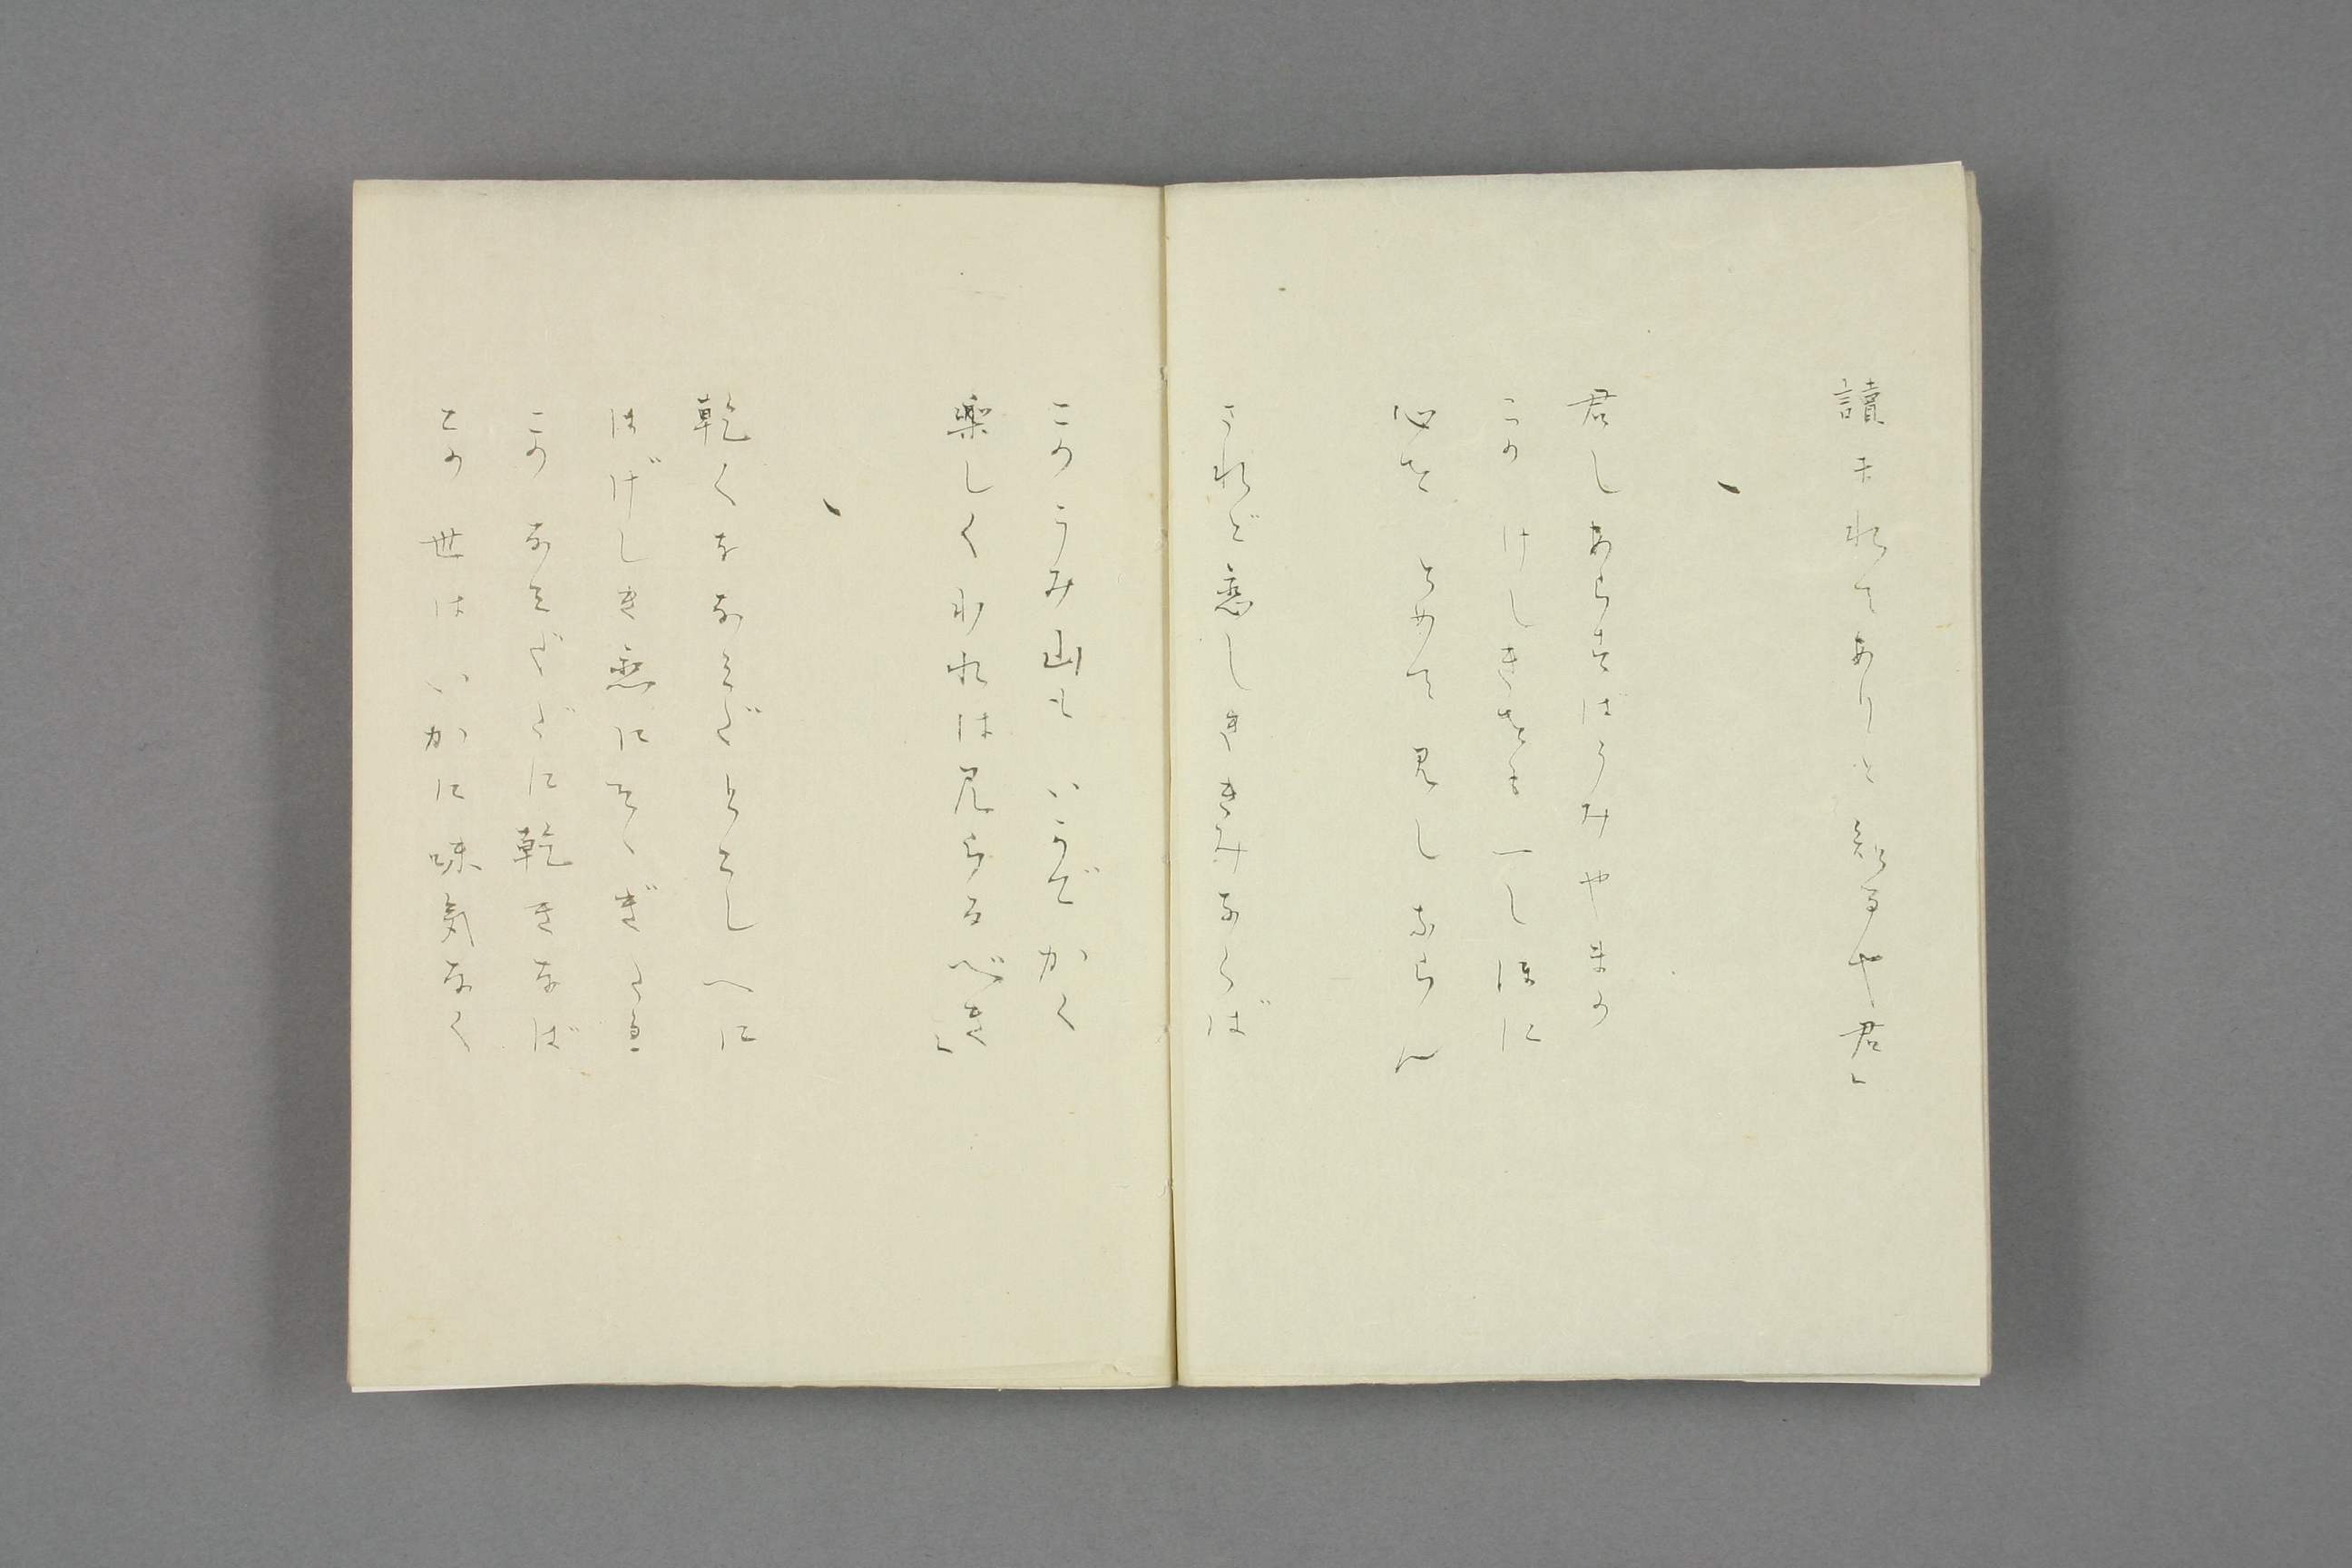 讀まれてありと知るや君」
、
君しあらずばうみやまの
このけしきをも一しほに
心を とめて見しならん
されど恋しききみならば
このうみ山も いかでかく
楽しくわれは見らるべき」
、
乾くまなみだとこしへに
はげしき恋にそゝぎたる
このなみだだに乾きなば
この世は いかに味気なく